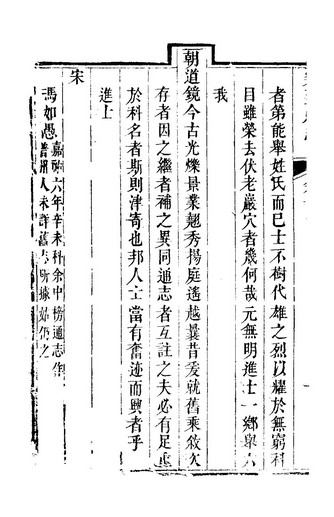 者第能舉姓氏而已士不樹代雄之烈以耀於無窮科
目雖榮去伏老巖穴者幾何哉元無明進士一鄉舉六
我
朝道鏡今古光爍景業翹秀揚庭遙越曩昔爰就舊乘敘次
存者因之繼者補之異同通志者互註之夫必有足重
於科名者斯則津寄也邦人士當有奮迹而興者乎
進士
宋
馮如愚
嘉定六年辛未科余中榜通志作
普州人未詳舊志所據姑仍之